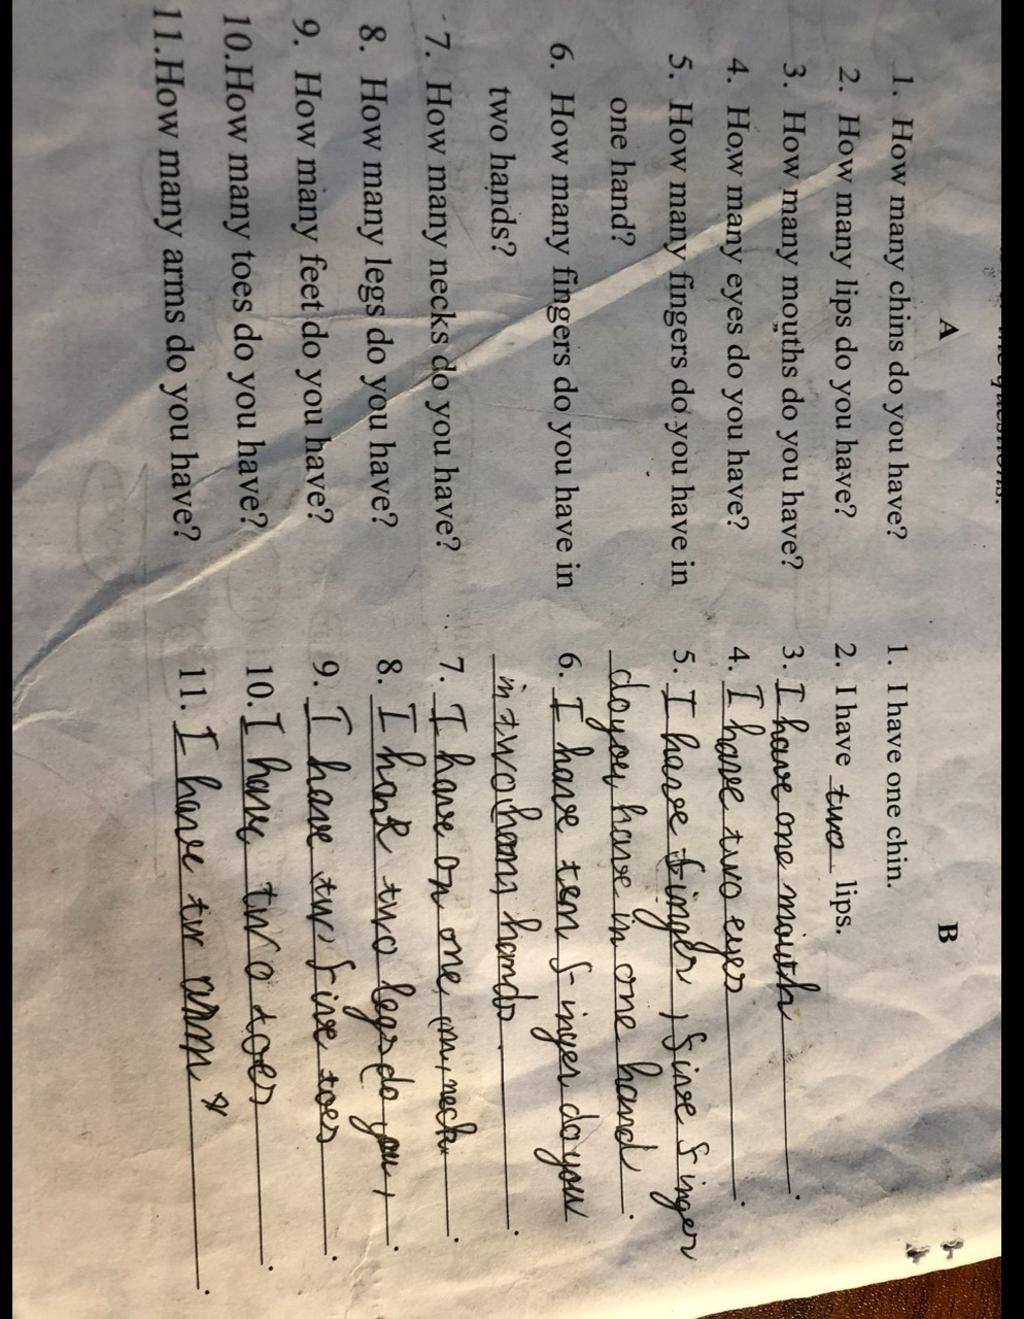 A
1. How many chins do you have?
2. How many lips do you have?
3. How many mouths do you have?
4. How many eyes do you have?
5. How many fingers do you have in
one hand?
6. How many fingers do you have in
two hands?
7. How many necks do you have?
8. How many legs do you have?
9. How many feet do you have?
10. How many toes do you have?
11. How many arms do you have?
B
1. I have one chin.
2. I have two lips.
3. I have one mouth.
4. I have two eyes.
5. I have finger, five finger
do you have in one hand.
6. I have ten finger do you
in two hands.
7. I have on one neck.
8. I have two legs do you.
9. I have tw five toes.
10. I have two toes.
11. I have tw arm.